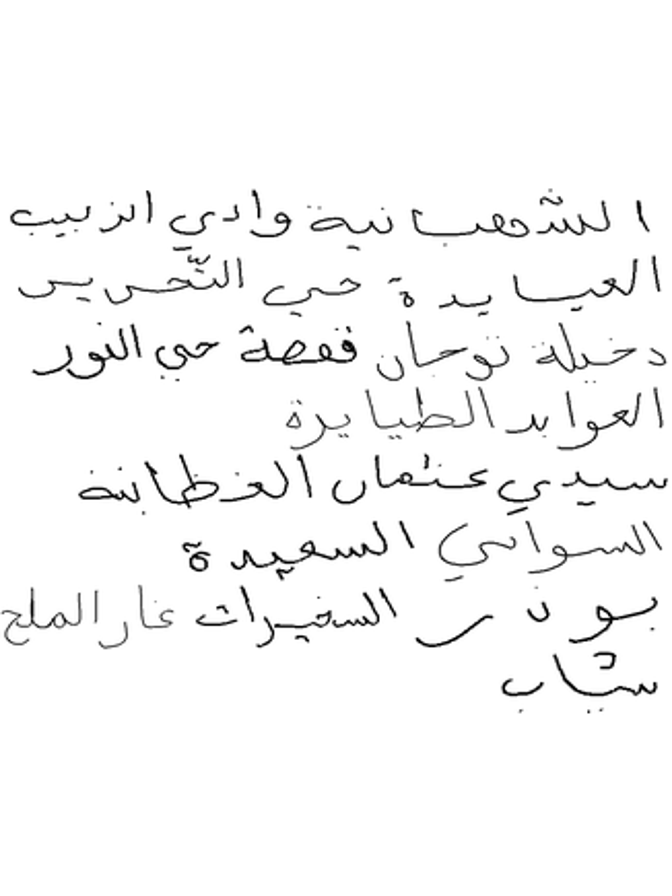 الشهبانية وادي الزبيب
العيايدة حي التّحرير
دخيلة توجان قفصة حي النور
العوابد الطيايرة
سيدي عثمان الغظابنة
السواني السعيدة
بوذر السخيرات غار الملح
شباب